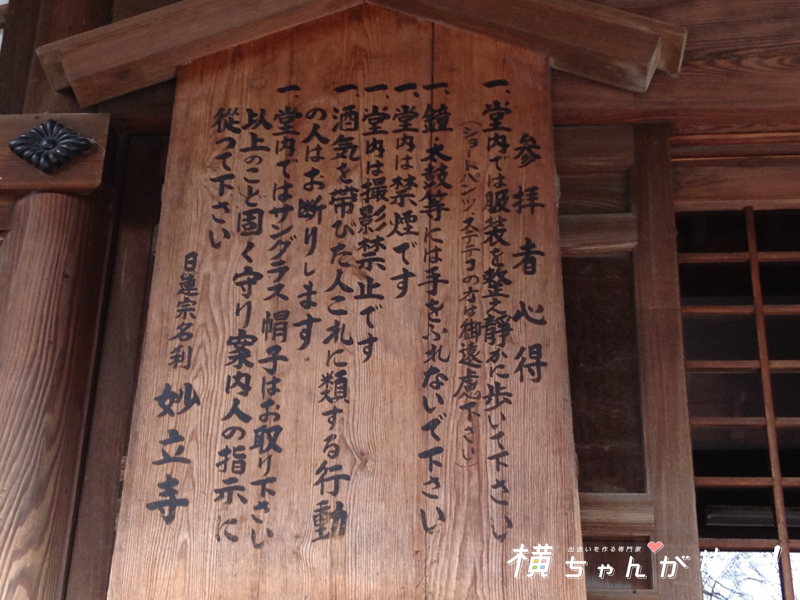 参拝者心得
一、堂内では服装を整え静かに歩いて下さい
(ショートパンツ、ステテコの方は御遠慮下さい)
一、鐘太鼓等には手をふれないで下さい
一、堂内は禁煙です
一、堂内は撮影禁止です
一、酒気を帯びた人これに類する行動
の人はお断りします
一、堂内ではサングラス帽子はお取り下さい
以上のこと固く守り案内人の指示に
従つて下さい
日蓮宗名刹
妙立寺
出会いを作る専門家
横ちゃんが